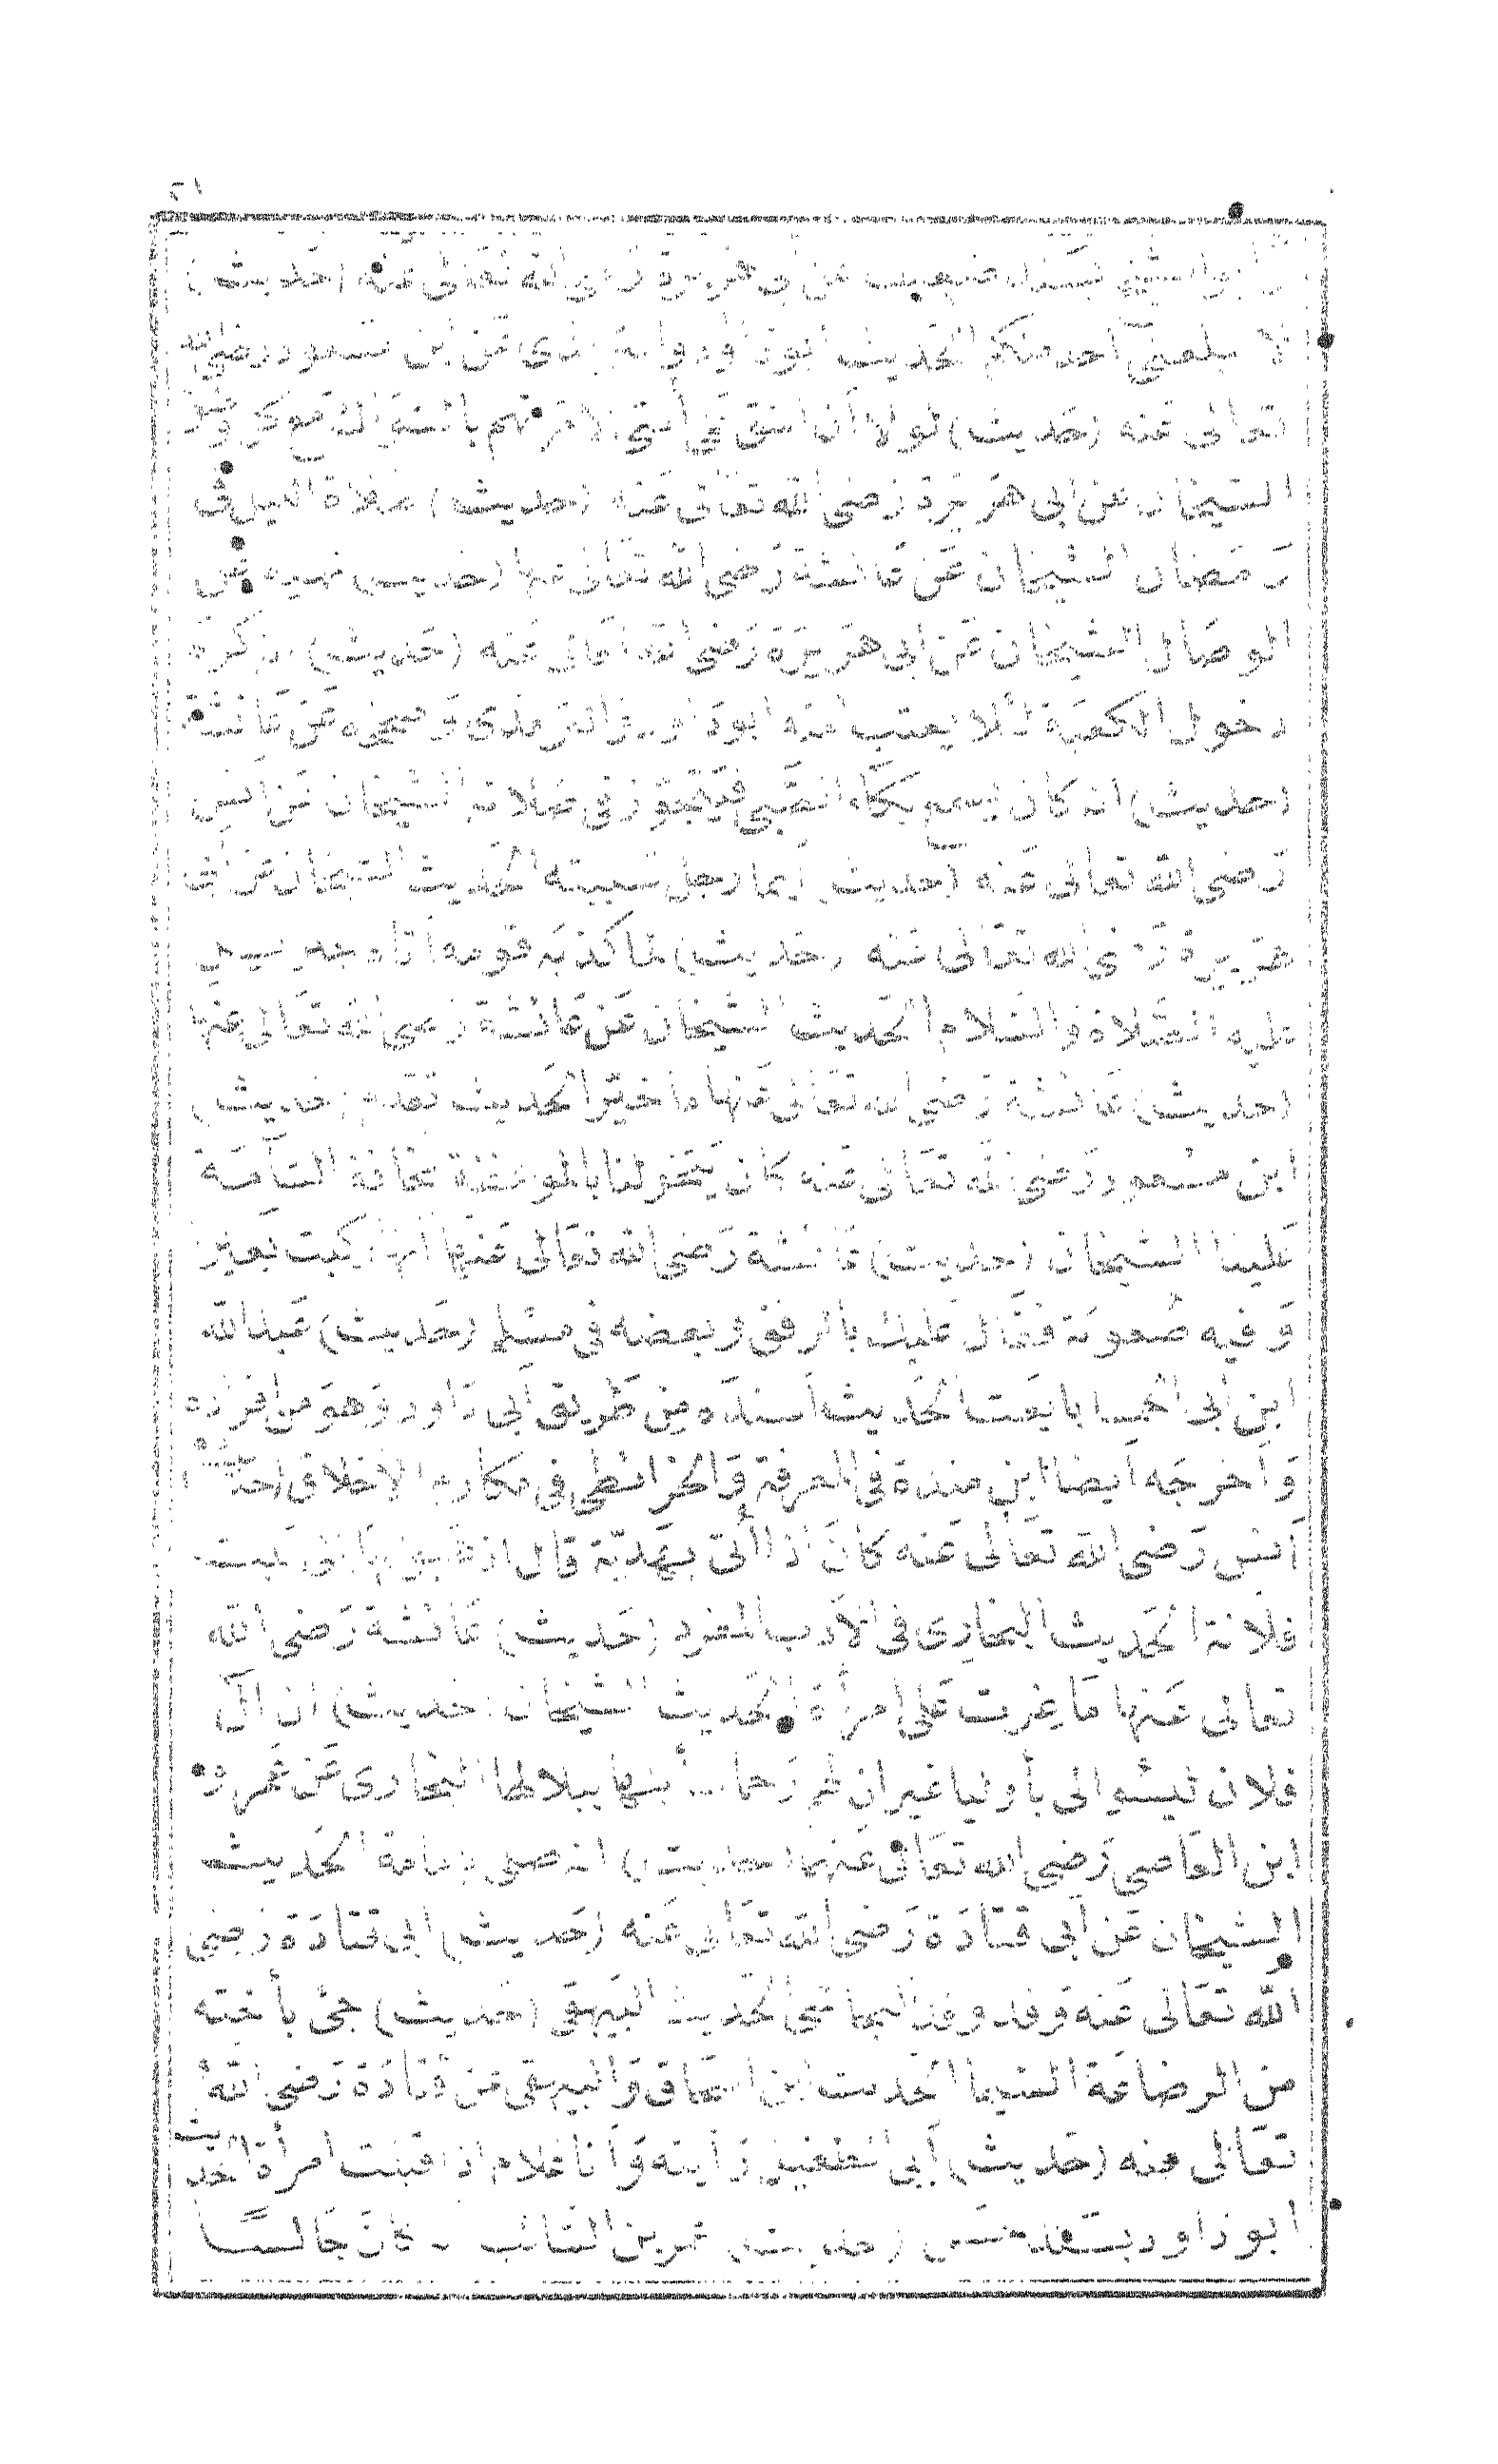 ٢١
أبو الشيخ بسند ضعيف عن أبى هريرة رضى الله تعالى عنه (حديث)
لا يبلغنى أحد منكم الحديث أبو داود والترمذى عن ابن مسعود رضى الله
تعالى عنه (حديث) لولا أن اشق على أمتى لامرتهم بالسواك
الشيخان عن ابى هريرة رضى الله تعالى عنه (حديث) صلاة الليل فى
رمضان الشيخان عن عائشة رضى الله تعالى عنها (حديث) نهيه عن
الوصال الشيخان عن ابى هريرة رضى الله تعالى عنه (حديث)
دخول الكعبة لئلا يعتب أمته ابو داود والترمذى وصححه عن عائشة
(حديث) انه كان يسمع بكاء الصبى فيتجوز فى صلاته الشيخان عن انس
رضى الله تعالى عنه (حديث) أيما رجل سببته الحديث الشيخان عن أبى
هريرة رضى الله تعالى عنه (حديث) لما كذبه قومه أتاه جبريل
عليه الصلاة والسلام الحديث الشيخان عن عائشة رضى الله تعالى عنها
(حديث) عائشة رضى الله تعالى عنها ما خير الحديث تقدم (حديث)
ابن مسعود رضى الله تعالى عنه كان يتخولنا بالموعظة مخافة السآمة
علينا الشيخان (حديث) عائشة رضى الله تعالى عنها أنها ركبت بعيرا
وفيه صعوبة فقال عليك بالرفق وبعضه فى مسلم (حديث) عبد الله
ابن أبى الحمسا بايعت الحديث أسنده من طريق أبى داود وهو من افراده
وأخرجه أيضا ابن مندة فى المعرفة والخرائطى فى مكارم الاخلاق (حديث)
أنس رضى الله تعالى عنه كان اذا أتى بهدية قال اذهبوا بها الى بيت
فلانة الحديث البخارى فى الأدب المفرد (حديث) عائشة رضى الله
تعالى عنها ما غرت على امرأة الحديث الشيخان (حديث) ان آل
فلان ليسوا لى بأوليا غير ان لهم رحما ... أبلها ببلالها البخارى عن عمرو
ابن العاصى رضى الله تعالى عنهما (حديث) انه صلى بامامة الحديث
الشيخان عن أبى قتادة رضى الله تعالى عنه (حديث) ابى قتادة رضى
الله تعالى عنه وفد وفد النجاشى الحديث البيهقى (حديث) جىء بأخته
من الرضاعة الشيما الحديث ابن اسحاق والبيهقى عن قتادة رضى الله
تعالى عنه (حديث) أبى الطفيل رأيته وأنا غلام اذ اقبلت امرأة الحديث
ابو داود بسند حسن (حديث) عمر بن السائب كان جالسا